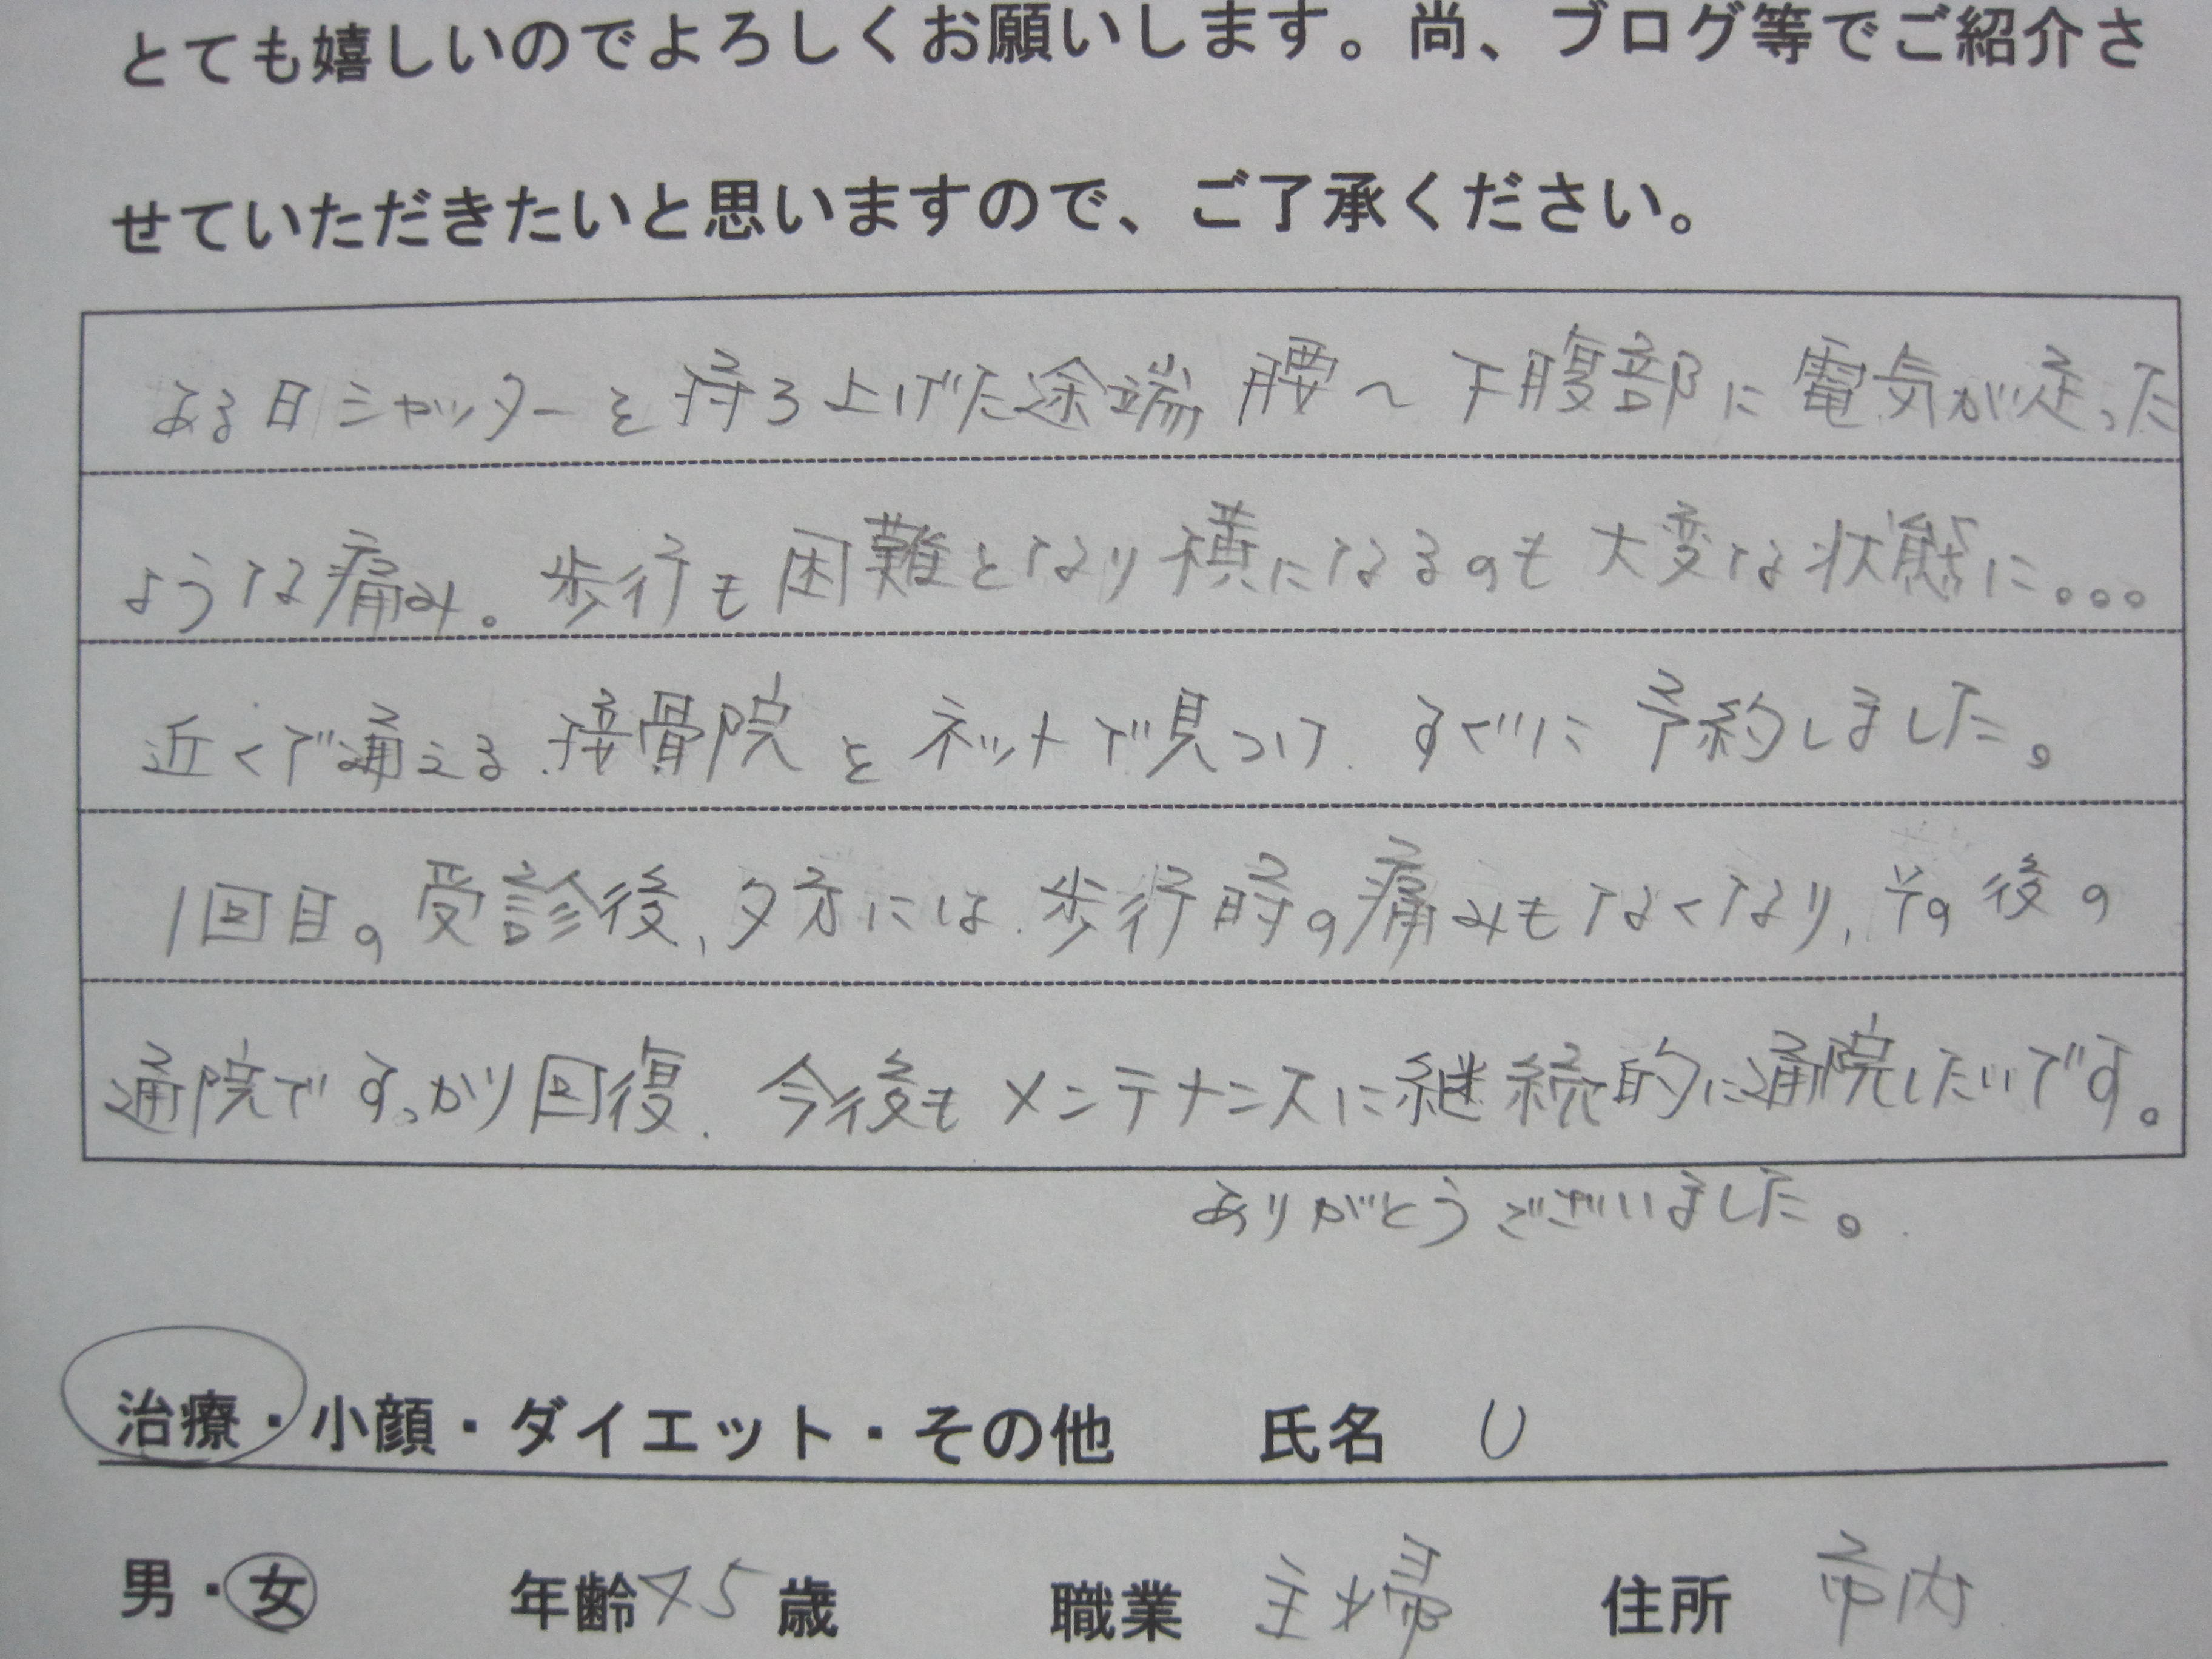 とても嬉しいのでよろしくお願いします。尚、ブログ等でご紹介さ
せていただきたいと思いますので、ご了承ください。
ある日シャッターを持ち上げた途端 腰〜下腹部に電気が走った
ような痛み。歩行も困難となり横になるのも大変な状態に。。。
近くで通える接骨院をネットで見つけ すぐに予約しました。
1回目の受診後、夕方には歩行時の痛みもなくなり、その後の
通院ですっかり回復、今後もメンテナンスに継続的に通院したいです。
ありがとうございました。
治療・小顔・ダイエット・その他 氏名 U
男・女 年齢 45 歳 職業 主婦 住所 市内